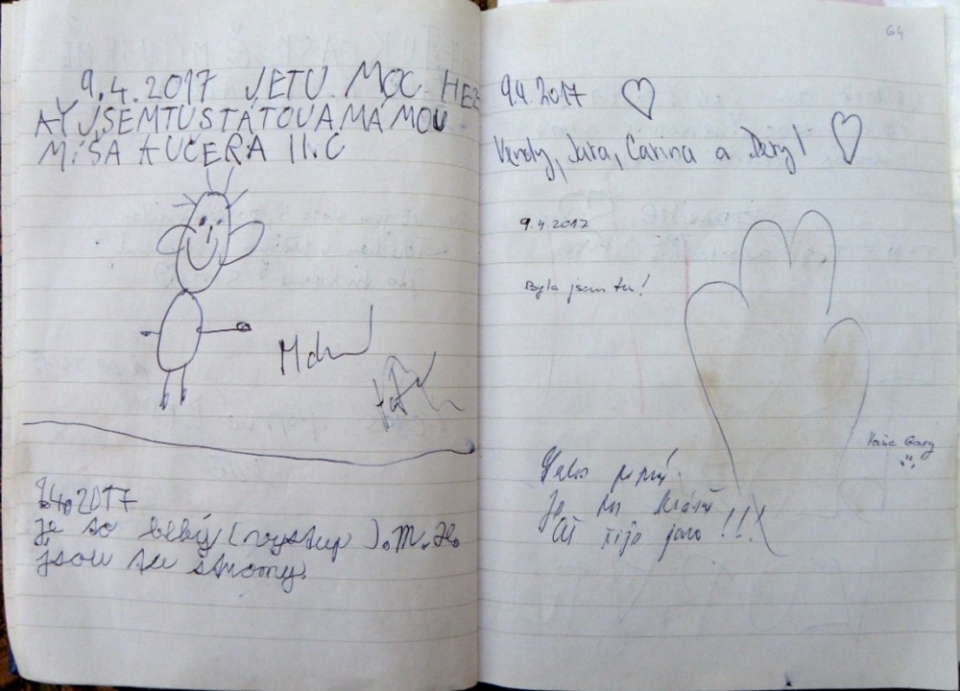 9.4.2017 JETU MOC HEZ
KÝ JSEMTUSTÁTOUAMÁMOU
MÍŠA KUČERA II.C
9.4.2017
je to blbý (výstup).M.K.
jsou tu stromy.
64
9.4.2017
Vendy, Jara, Carina a Deny
9.4.2017
Byla jsem tu!
Vaše Gary
Je tu
Ať žije jaro!!!